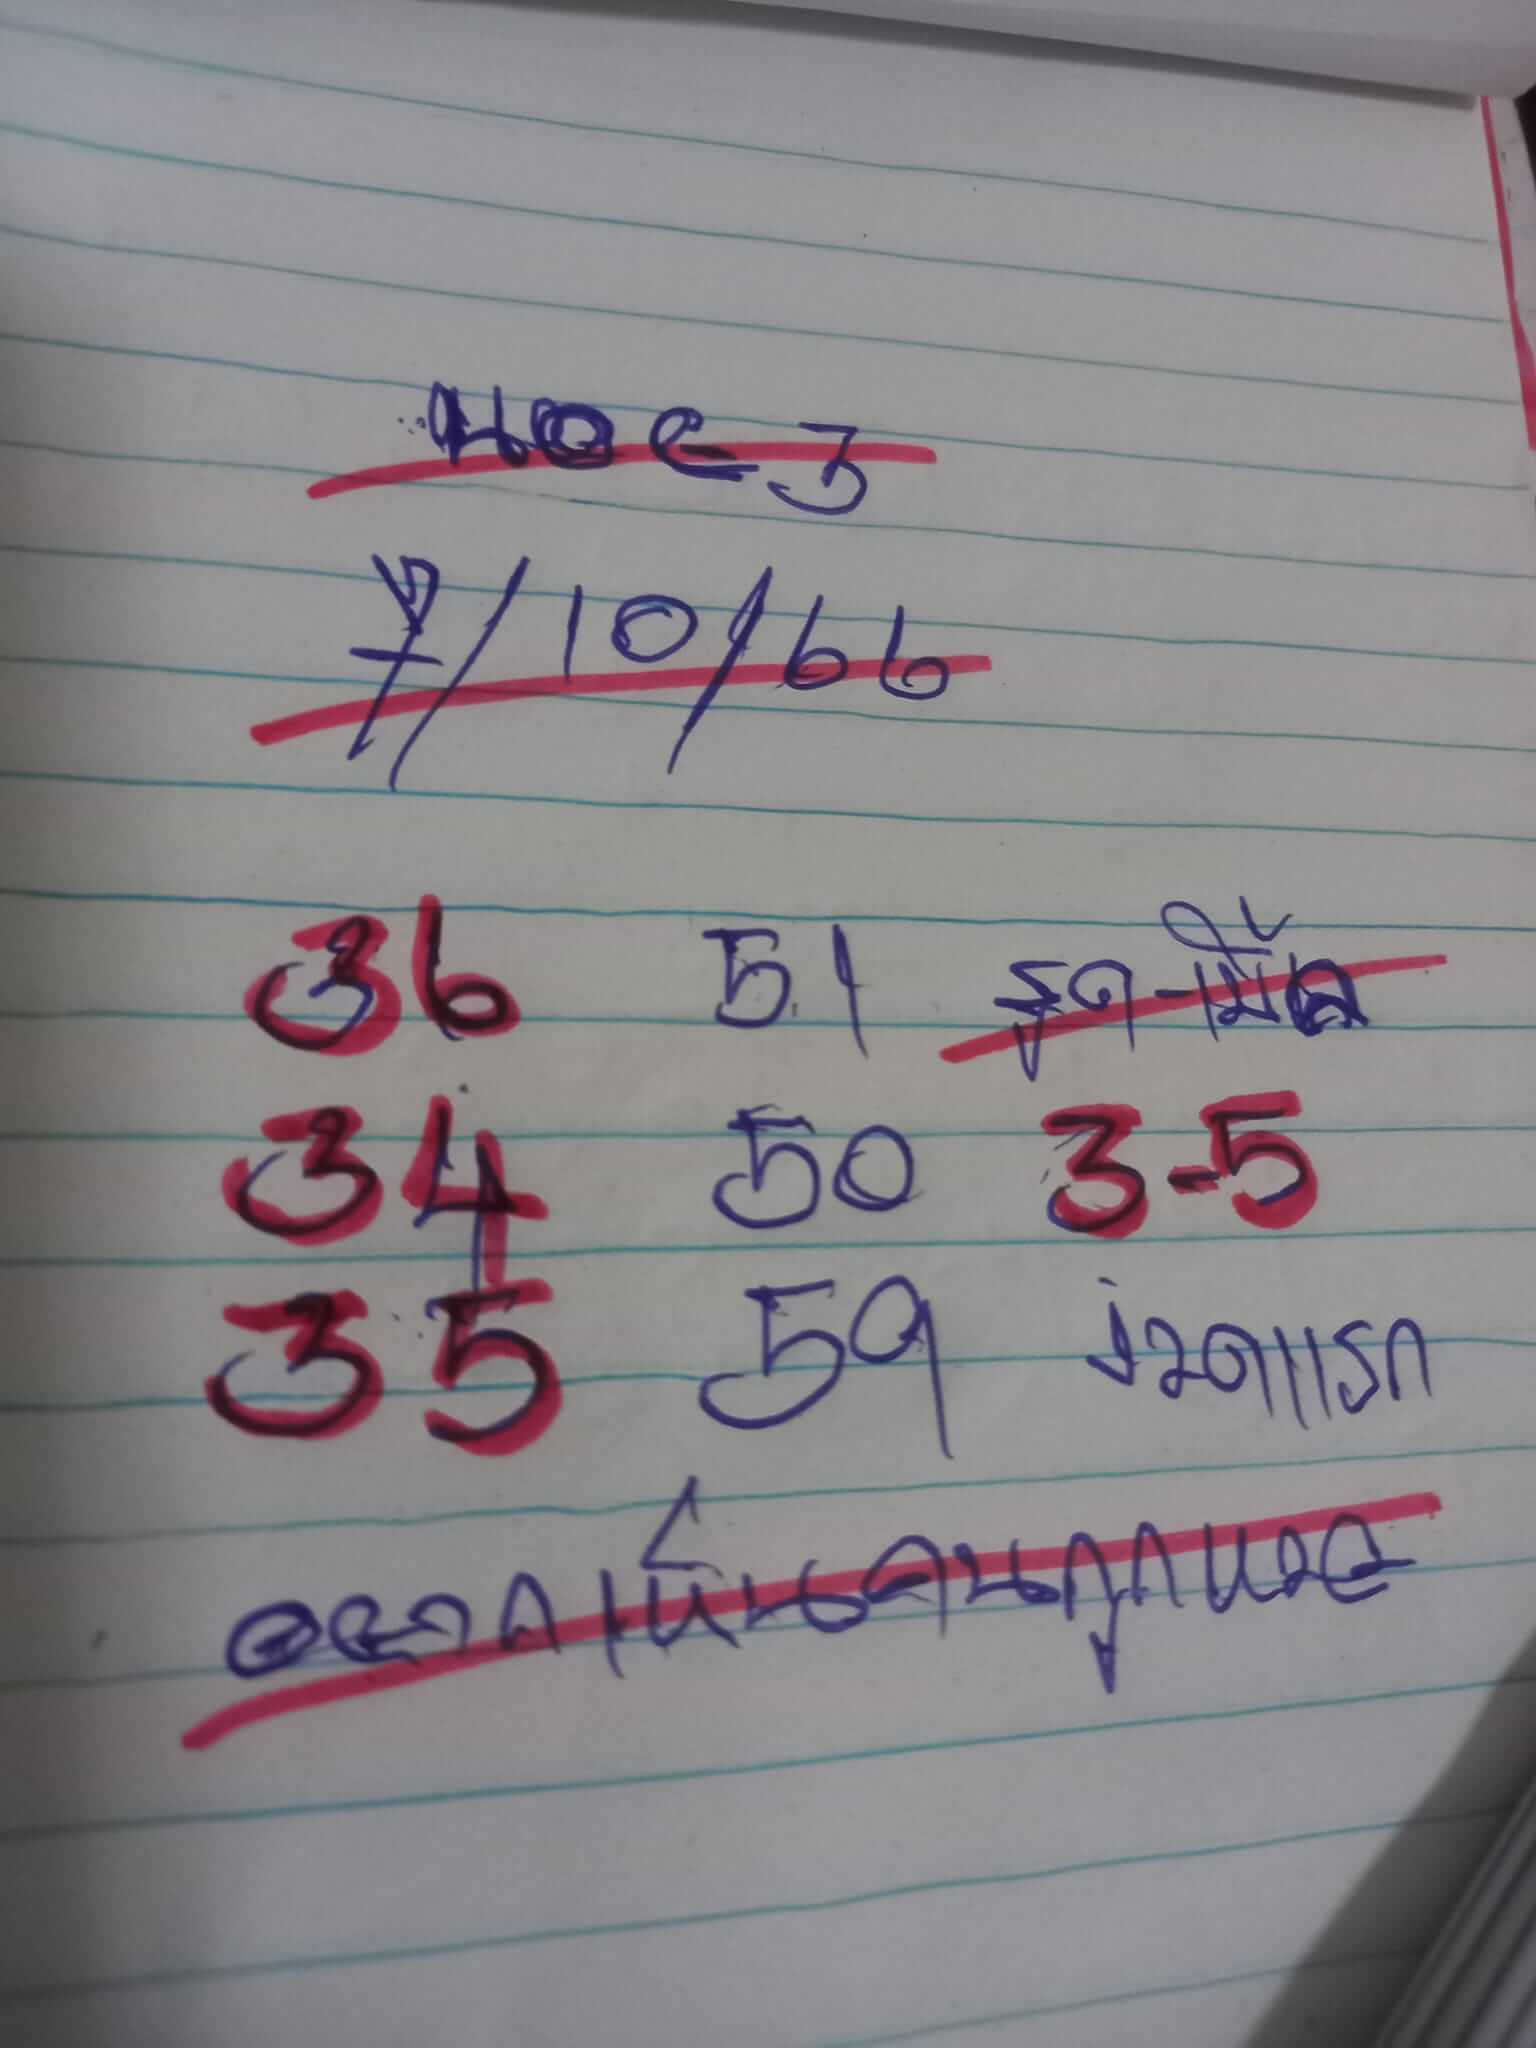 ฮานอย
7/10/66
36 51 รูด-เม็ด
34 50 3-5
35 59 งวดแรก
อยากเห็นคนถูกหวย